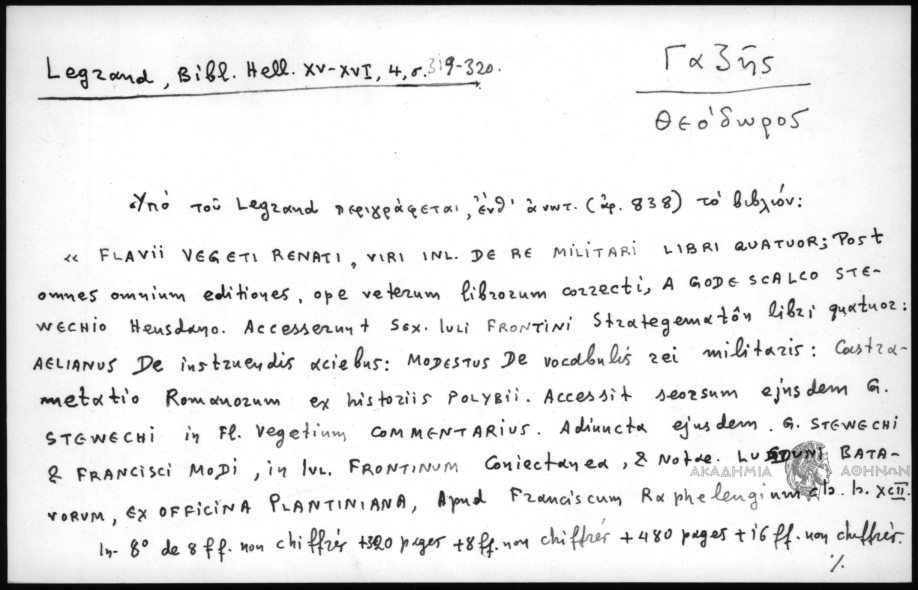 Legrand, Bibl. Hell. XV-XVI, 4, σ. 319-320.
Γαζῆς
Θεόδωρος
Ὑπό τοῦ Legrand περιγράφεται, ἔνθ' ἀνωτ. (ἀρ. 838) τό βιβλίον:
« FLAVII VEGETI RENATI, VIRI INL. DE RE MILITARI LIBRI QUATUOR; Post
omnes omnium editiones, ope veterum librorum correcti, A GODESCALCO STE-
WECHIO Heusdano. Accesserunt SEX. IULI FRONTINI Strategematôn libri quatuor:
AELIANUS De instruendis aciebus: MODESTUS De vocabulis rei militaris: Castra-
metatio Romanorum ex historiis POLYBII. Accessit seorsum ejusdem G.
STEWECHI in Fl. Vegetium COMMENTARIUS. Adiuncta ejusdem G. STEWECHI
& FRANCISCI MODI, in IUL. FRONTINUM Coniectanea, & Notae. LUGDUNI BATA-
VORUM, EX OFFICINA PLANTINIANA, Apud Franciscum Raphelengium. cIɔ. Iɔ. XCII.
In-8° de 8 ff. non chiffrés +320 pages +8 ff. non chiffrés +480 pages +16 ff. non chiffrés.
./.
ΑΚΑΔΗΜΙΑ ΑΘΗΝΩΝ